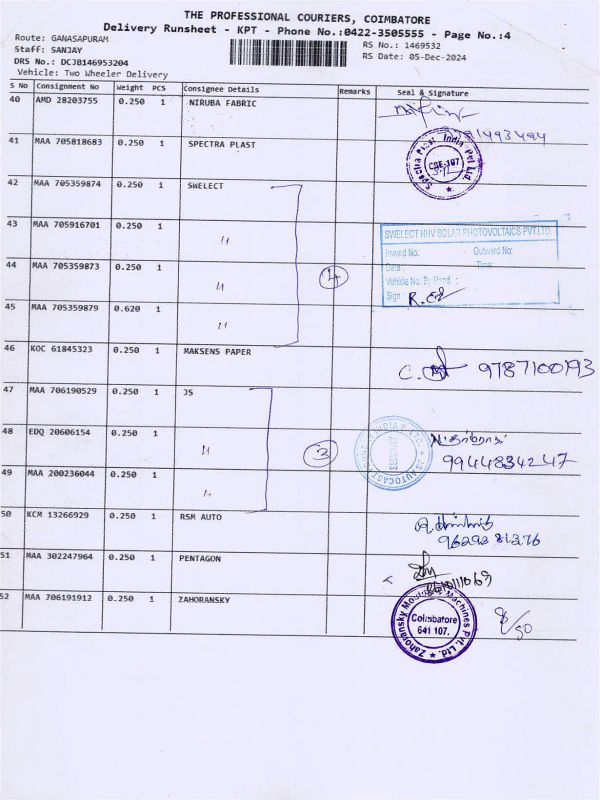 THE PROFESSIONAL COURIERS, COIMBATORE
Delivery Runsheet - KPT - Phone No.:0422-3505555 - Page No.:4
Route: GANASAPURAM RS No.: 1469532
Staff: SANJAY RS Date: 05-Dec-2024
DRS No.: DCJB146953204
Vehicle: Two Wheeler Delivery
S No Consignment No Weight PCS Consignee Details Remarks Seal & Signature
40 AMD 28203755 0.250 1 NIRUBA FABRIC
41 MAA 705818683 0.250 1 SPECTRA PLAST
Spectra Plast India Pvt Ltd.
CBE-107
42 MAA 705359874 0.250 1 SWELECT
43 MAA 705916701 0.250 1 "
SWELECT HHV SOLAR PHOTOVOLTAICS PVT.LTD
Inward No: Outward No:
Date : Time:
Vehicle No. By Hand :
Sign :
44 MAA 705359873 0.250 1 " 4
45 MAA 705359879 0.620 1 "
46 KOC 61845323 0.250 1 MAKSENS PAPER 9787100193
47 MAA 706190529 0.250 1 JS
48 EDQ 20606154 0.250 1 " 3
JS AUTOCAST
SECURITY
9944834247
49 MAA 200236044 0.250 1 "
50 KCM 13266929 0.250 1 RSM AUTO
9629281376
51 MAA 302247964 0.250 1 PENTAGON
52 MAA 706191912 0.250 1 ZAHORANSKY
Zahoransky Moulds Machines Pvt. Ltd.
Coimbatore
641 107.